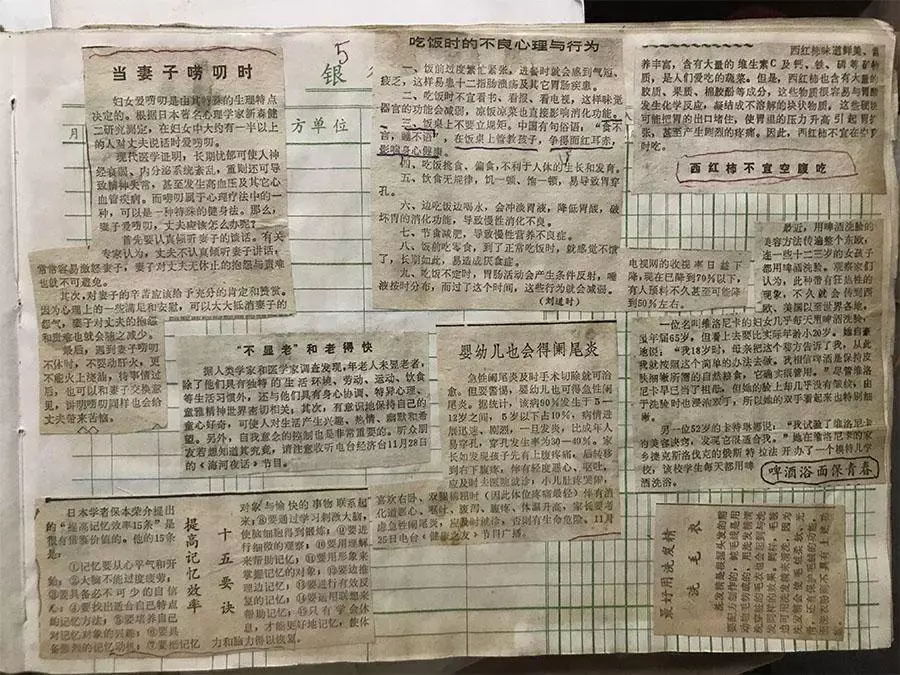 5
银
月
方单位
当妻子唠叨时
妇女爱唠叨是由其特殊的生理特点
决定的。根据日本著名心理学家新森健
二研究测定，在妇女中大约有一半以上
的人对丈夫说话时爱唠叨。
现代医学证明，长期忧郁可使人神
经衰弱、内分泌系统紊乱，重则还可导
致精神失常，甚至发生高血压及其它心
血管疾病。而唠叨属于心理疗法中的一
种，可以是一种特殊的健身法。那么，
妻子爱唠叨，丈夫应该怎么办呢？
首先要认真倾听妻子的谯话。有关
专家认为，丈夫不认真倾听妻子讲话，
常常容易激怒妻子，妻子对丈夫无休止的抱怨与责难
也就不可避免。
其次，对妻子的辛苦应该给予充分的肯定和赞赏。
因为心理上的一些满足和安慰，可以大大抵消妻子的
怨气，妻子对丈夫的抱怨
和责难也就会随之减少。
最后，遇到妻子唠叨
不休时，不要动肝火，更
不能火上浇油，待事情过
后，也可以和妻子交换意
见，讲明唠叨同样也会给
丈夫带来苦恼。
吃饭时的不良心理与行为
一、饭前过度繁忙紧张，进餐时就会感到气短、
疲乏，这样易患十二指肠溃疡及其它胃肠实患。
二、吃饭时不宜看书、看报、看电视，这样味觉
器官的功能会减弱，凉饭凉菜也直接影响消化功能。
三、饭桌上不要立规矩。中国有句俗语，“食不
言，睡不语”，在饭桌上管教孩子，争得面红耳赤，
影响身心健康。
四、吃饭挑食、偏食，不利于人体的生长和发育。
五、饮食无规律，饥一顿、饱一顿，易导致胃穿
孔。
六、边吃饭边喝水，会冲淡胃液，降低胃酸，破
坏胃的消化功能，导致慢性消化不良。
七、节食减肥，导致慢性营养不良症。
八、饭前吃零食，到了正常吃饭时，就感觉不饿
了，长期如此，易造成厌食症。
九、吃饭不定时，胃肠活动会产生条件反射，唾
液按时分布，而过了这个时间，这些行为就会减弱。
（刘建时）
西红柿味道鲜美、营
养丰富，含有大量的维生素C及钙、铁、磷等矿物
质，是人们爱吃的蔬菜。但是，西红柿也含有大量的
胶质、果质、棉胶酚等成分，这些物质很容易与胃酸
发生化学反应，凝结成不溶解的块状物质，这些硬块
可能把胃的出口堵住，使胃里的压力升高引起胃扩
张，甚至产生剧烈的疼痛。因此，西红柿不宜在空腹
时吃。
西红柿不宜空腹吃
电视网的收视率日益下
降，现在已降到70%以下，
有人预料不久甚至可能降
到50%左右。
最近，用啤酒洗脸的
美容方法传遍整个东欧，
连一些十二三岁的女孩子
都用啤酒洗脸。观察家们
认为，此种带有狂热性的
现象，不久就会传到西
欧、美国以至世界各地。
一位名叫维洛尼卡的妇女几乎每天用啤酒洗脸，
虽年届65岁，但看上去要比实际年龄小20岁。她自豪
地说：“我18岁时，母亲把这个秘方告诉了我，从此
我就按照这个简单的办法去做。我相信啤酒是保持皮
肤细嫩所需的自然粮食，它确实很管用。”尽管维洛
尼卡早已当了祖母，但她的脸上却几乎没有皱纹，由
于洗脸时也要湿双手，所以她的双手看起来也特别细
嫩。
另一位52岁的卡特琳娜说：“我试验了维洛尼卡
的美容诀窍，发现它很适合我。”她在维洛尼卡的家
乡捷克斯洛伐克的俄斯特拉法开办了一个模特儿学
校，该校学生每天都用啤
酒洗浴。
啤酒浴面保青春
“不显老”和老得快
据人类学家和医学家调查发现，年老人未显老者，
除了他们具有独特的生活环境、劳动、运动、饮食
等生活习惯外，还与他们具有身心协调、特异心理、
童雅精神世界密切相关。其次，有意识地保持自己的
童心好奇，可使人对生活产生兴趣、热情、幽默和希
望。另外，自我意念的控制也是非常重要的。听众朋
友若想知道其究竟，请注意收听电台经济台11月28日
的《海河夜话》节目。
婴幼儿也会得阑尾炎
急性阑尾炎及时手术切除就可治
愈。但要警惕，婴幼儿也可得急性阑尾
炎。据统计，该病90%发生于5—
12岁之间，5岁以下占10%，病情进
展迅速、剧烈，一旦发炎，比成年人
易穿孔，穿孔发生率为30—40%。家
长如发现孩子先有上腹疼痛，后转移
到右下腹疼，伴有轻度恶心、呕吐，
应及时去医院就诊，小儿肚疼哭闹，
喜欢右卧、双腿稀扭时（因此体位疼痛最轻）伴有消
化道恶心、呕吐、腹泻、腹疼、体温升高，家长要考
虑急性阑尾炎，应及时就诊，否则有生命危险。11月
25日电台《健康之友》节目广播。
日本学者保本荣介提出
的“提高记忆效率15条”是
很有借鉴价值的。他的15条
是：
①记忆要从心平气和开
始；②大脑不能过度疲劳；
③要具备必不可少的自信
心；④要找出适合自己特点
的记忆方法；⑤要培养自己
对记忆对象的兴趣；⑥要具
备强烈的记忆动机；⑦要把记忆
提高记忆效率
十五要诀
对象与愉快的事物联系起
来；⑧要通过学习刺激大脑，
使脑细胞得到锻炼；⑨要进
行细致的观察；⑩要用理解
来帮助记忆；⑪要用形象来
掌握记忆的对象；⑫要边推
理边记忆；⑬要进行有效反
复的记忆；⑭要运用联想来
帮助记忆；⑮只有学会休
息，才能更好地记忆，使体
力和脑力得以恢复。
最好用洗发精
洗毛衣